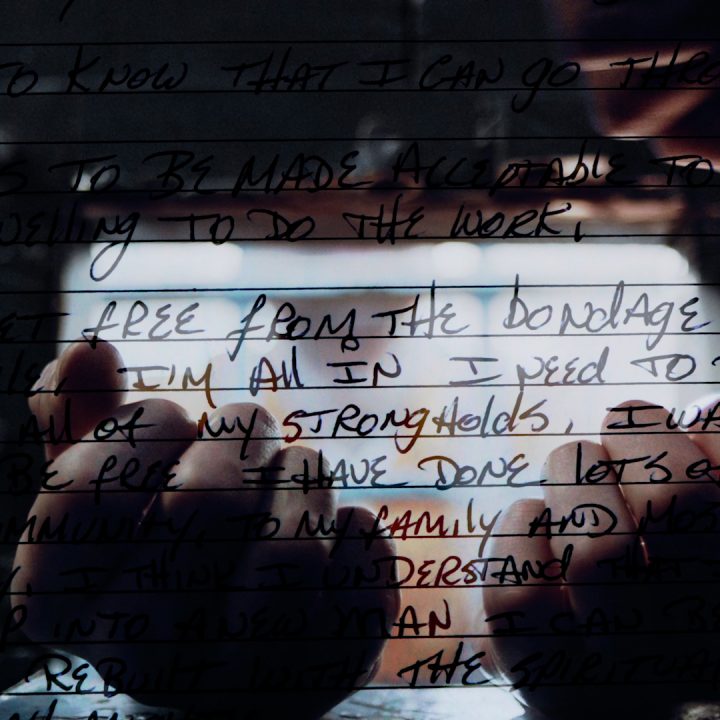 TO KNOW THAT I CAN go THRO
S TO BE MADE ACCEPTABLE TO
WELLING TO DO THE WORK,
ET FREE FROM THE BONDAGE
I'M All IN I NEED TO
All of MY STRONGHOLDS, I WA
BE FREE I HAVE DONE LOTS O
MMUNITY, TO MY FAMILY AND MOS
Y, I THINK I UNDERSTAND THAT
P INTO A NEW MAN I CAN BE
REBUILT WITH THE SPIRITUA